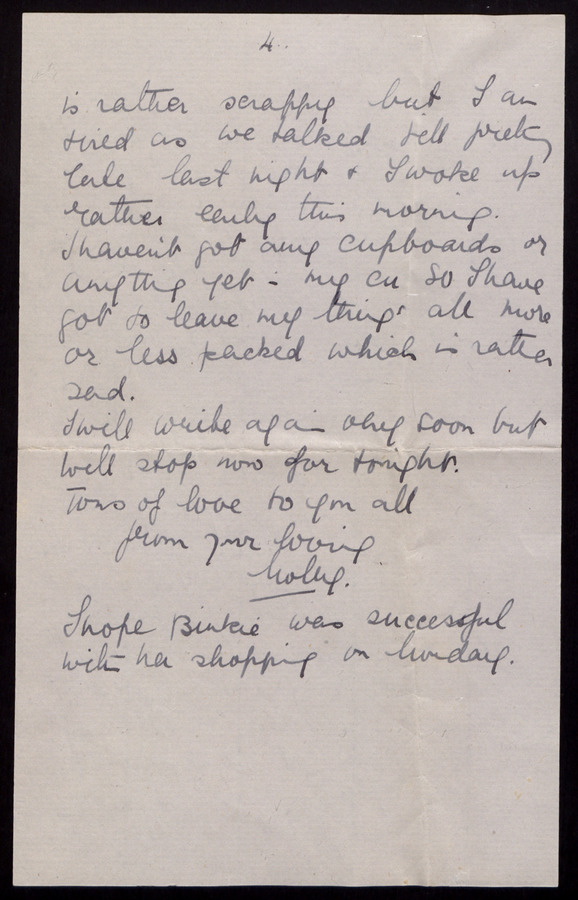 4.
is rather scrappy but I am
tired as we talked till pretty
late last night & I woke up
rather early this morning.
I haven't got any cupboards or
anything yet - my so I have
got to leave my things all more
or less packed which is rather
sad.
I will write again very soon but
will stop now for tonight.
Tons of love to you all
from your loving
Molly.
I hope Binkie was successful
with her shopping on Monday.